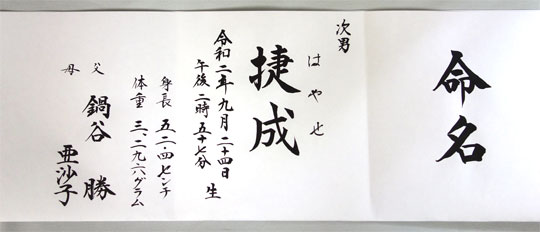 命名
次男
はやせ
捷成
令和二年九月二十四日
午後二時五十七分 生
身長 五二・四センチ
体重 三、二九六グラム
父 鍋谷 勝
母 亜沙子